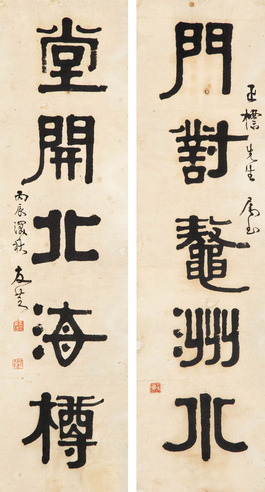 玉標先生属
門對鼇洲水
堂開北海樽
丙辰深秋友芝